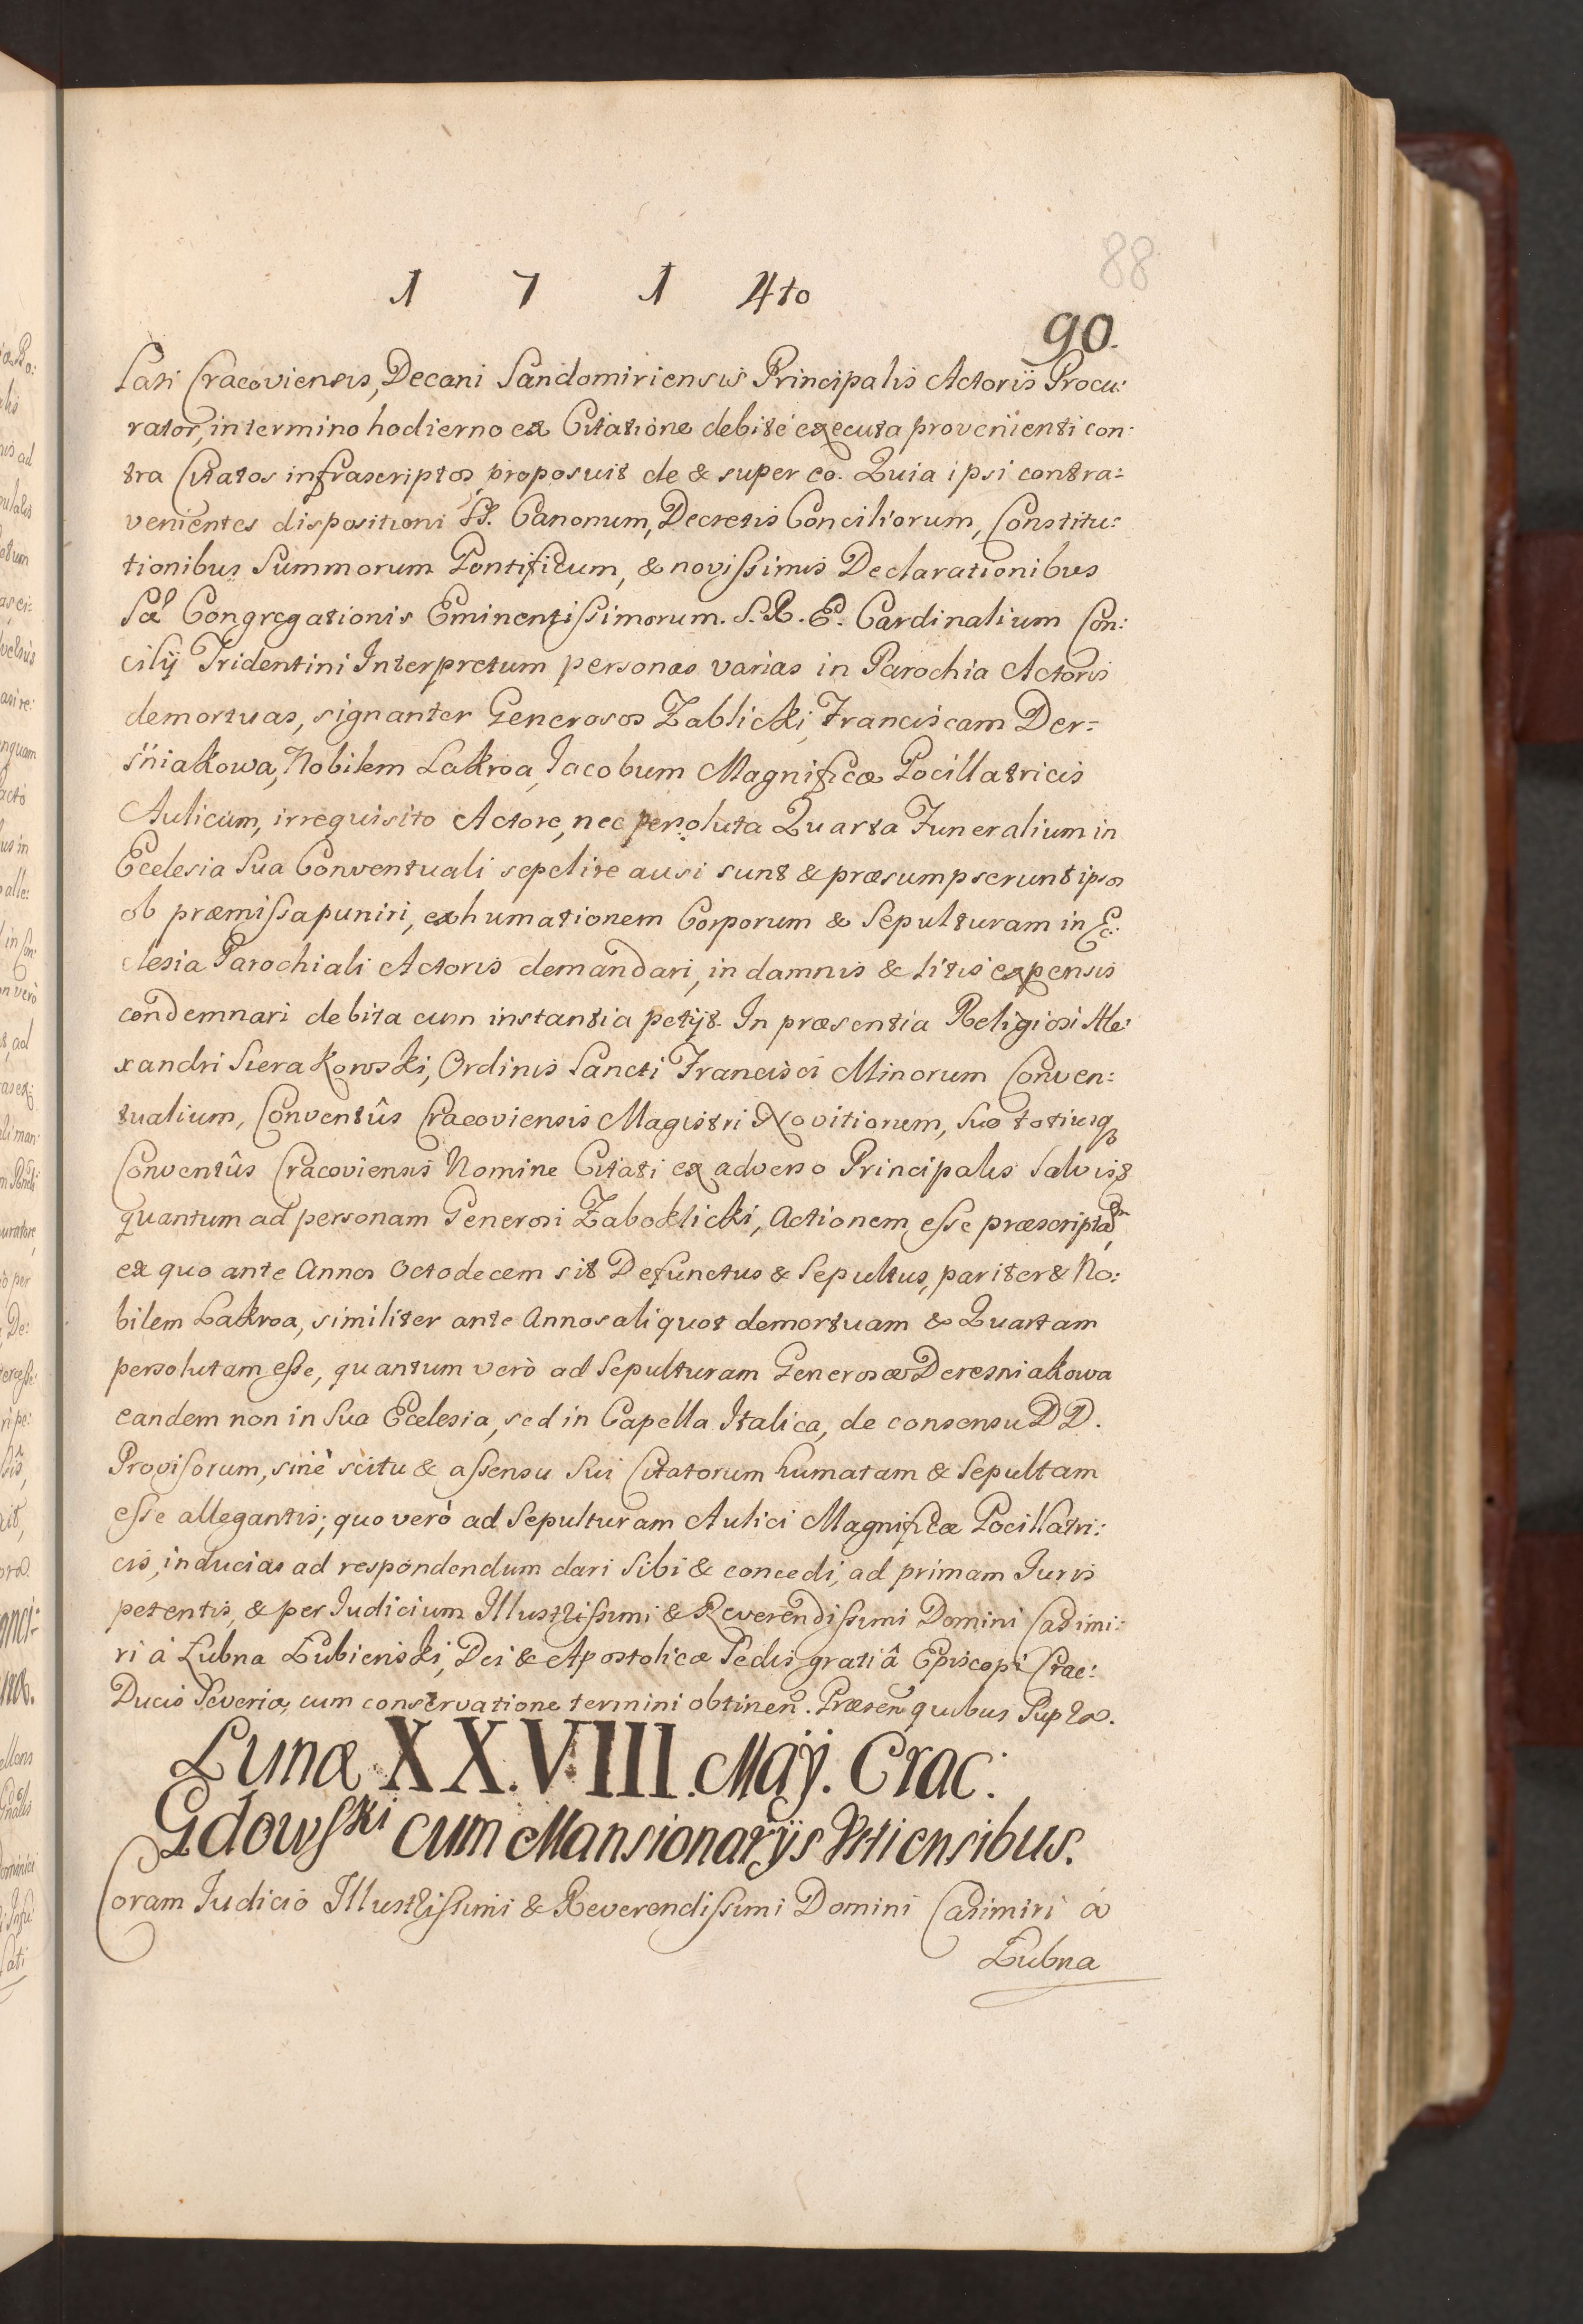 88
1 7 1 4to
90.
lati Cracoviensis, Decani Sandomiriensis Principalis Actoris Procu:
rator, in termino hodierno ex Citatione debitè executa provenienti con:
tra Citatos infrascriptos proposuit de & super eo. Quia ipsi contra:
venientes dispositioni SS. Canonum, Decretis Conciliorum, Constitu:
tionibus Summorum Pontificum, & novissimis Declarationibus
Sac Congregationis Eminentissimorum. S. R. E. Cardinalium Con:
cilij Tridentini Interpretum personas varias in Parochia Actoris
demortuas, signanter Generosos Zablicki, Franciscam Der=
śniakowa, Nobilem Lakroa, Jacobum Magnificæ Pocillatricis
Aulicum, irrequisito Actore, nec persoluta Quarta Funeralium in
Ecclesia Sua Conventuali sepelire ausi sunt & præsumpserunt ipsos
ob præmissa puniri, exhumationem Corporum & Sepulturam in Ec:
clesia Parochiali Actoris demandari, in damnis & litis expensis
condemnari debita cum instantia petijt. In præsentia Religiosi Ale:
xandri Sierakowski, Ordinis Sancti Francisci Minorum Conven:
tualium, Conventûs Cracoviensis Magistri Novitiorum, Suo totiusq
Conventûs Cracoviensis Nomine Citati ex adverso Principalis Salvis
quantum ad personam Generosi Zaboklicki, Actionem esse præscriptam,
ex quo ante Annos Octodecem sit Defunctus & Sepultus, pariter & No:
bilem Lakroa, similiter ante Annos aliquot demortuam & Quartam
persolutam esse, quantum verò ad Sepulturam Generosæ Deresniakowa
eandem non in Sua Ecclesia, sed in Capella Italica, de consensu DD.
Provisorum, sinè scitu & assensu Sui Citatorum humatam & Sepultam
esse allegantis; quo verò ad Sepulturam Aulici Magnificæ Pocillatri:
cis, inducias ad respondendum dari Sibi & concedi, ad primam Juris
petentis, & per Judicium Illustrissimi & Reverendissimi Domini Casimi:
ri à Lubna Lubienski, Dei & Apostolicæ Sedis gratiâ Episcopi Crac:
Ducis Severiæ, cum conservatione termini obtinen. Præsen quibus Supra.
Lunæ XX.VIII. Maÿ. Crac:
Gdowski cum Mansionarÿs Ktiensibus.
Coram Judicio Illustrissimi & Reverendissimi Domini Casimiri à
Lubna